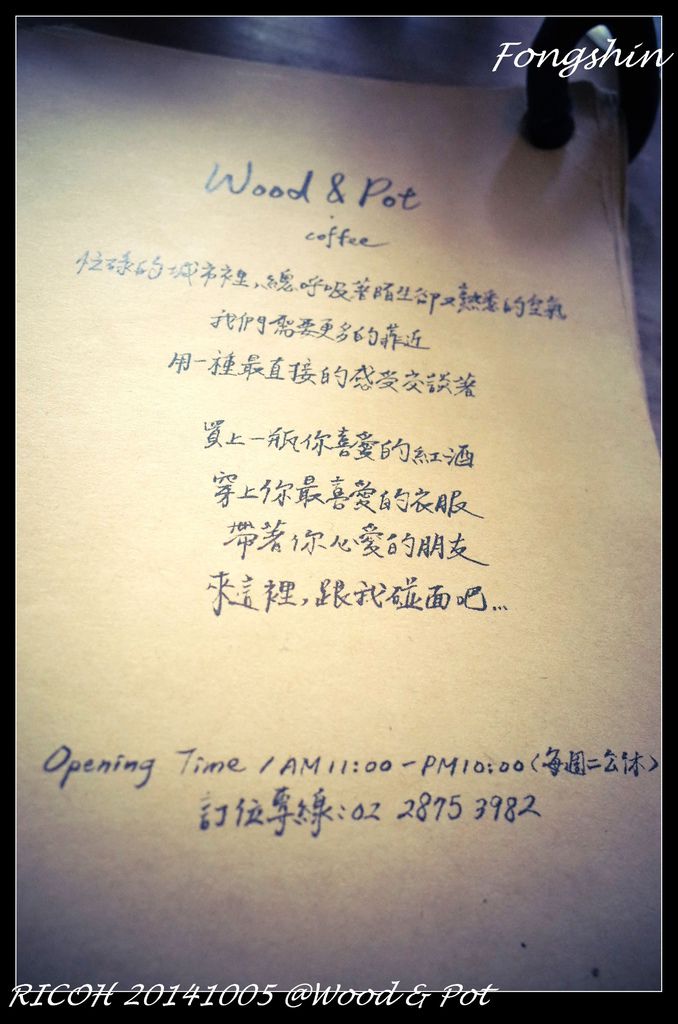 Fongshin
Wood & Pot
coffee
忙碌的城市裡,總呼吸著陌生卻又熱悉的空氣
我們需要更多的靠近
用一種最直接的感受交談著
買上一瓶你喜愛的紅酒
穿上你最喜愛的衣服
帶著你心愛的朋友
來這裡,跟我碰面吧...
Opening Time / AM11:00-PM10:00(每週二公休)
訂位專線:02 2875 3982
RICOH 20141005 @Wood & Pot